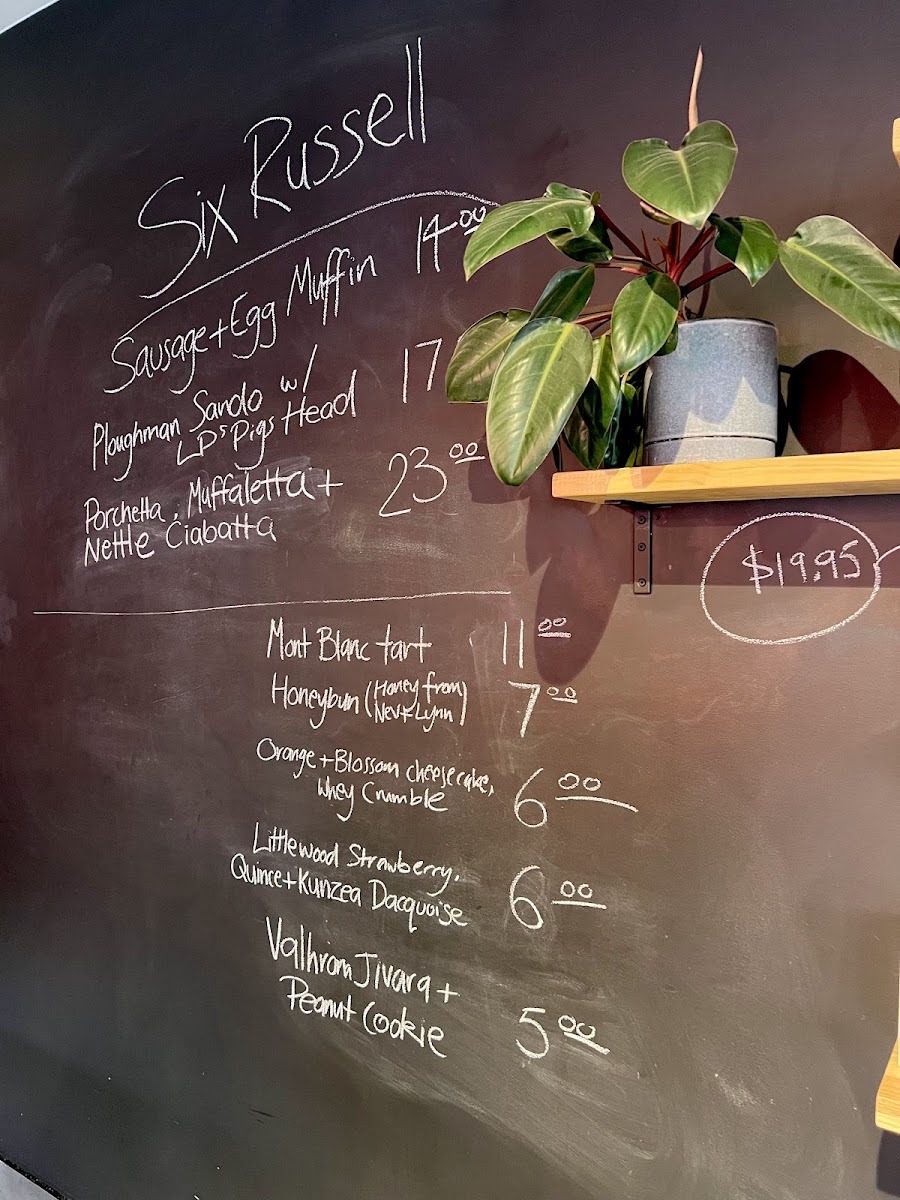 Six Russell
Sausage + Egg Muffin 14.00
Ploughman Sando w/ 17
LP's Pigs Head
Porchetta, Muffaletta + 23.00
Nettle Ciabatta
$19.95
Mont Blanc tart 11.00
Honeybun (Honey from 7.00
Nev + Lynn)
Orange + Blossom cheesecake, 6.00
Whey Crumble
Littlewood Strawberry, 6.00
Quince + Kunzea Dacquoise
Valhrom Jivara +
Peanut Cookie 5.00